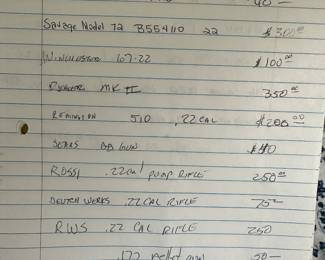 40 —
Savage Model 72 B554110 22 $300 00
Winchester 67-22 $100 00
MK II 350 00
Remington 510 .22 CAL $200 00
Sears BB Gun $40
Rossi .22 cal pump Rifle 250 00
Deutch Werks .22 CAL Rifle 75 —
RWS .22 CAL Rifle 250
.177 pellet gun 50 —